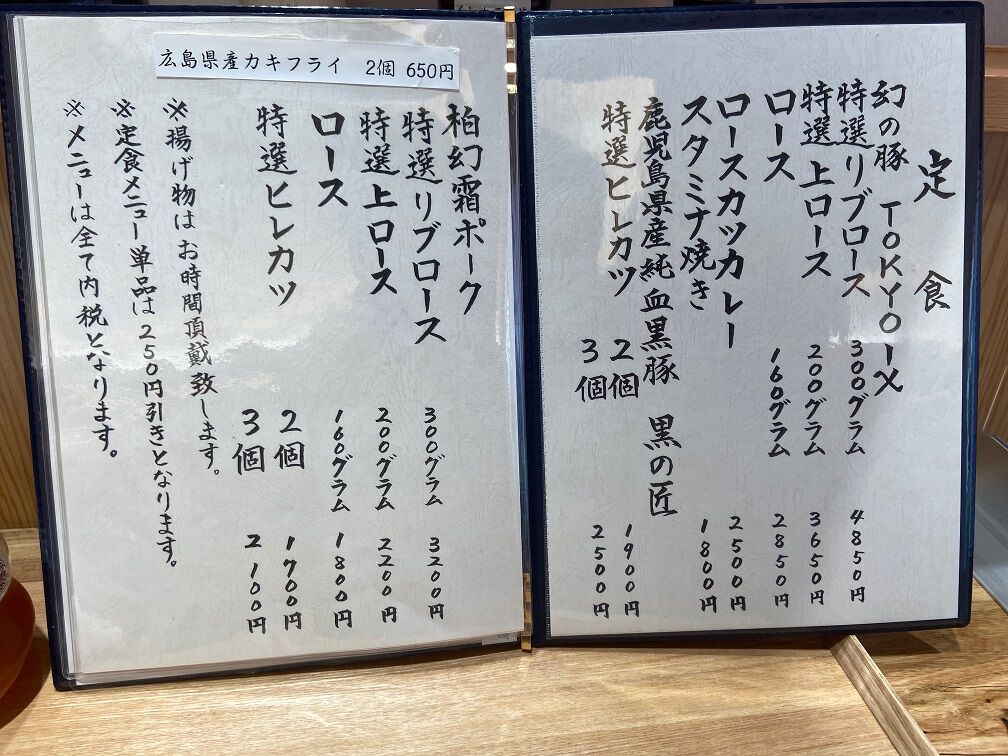 定食
幻の豚 TOKYO-X
特選リブロース 300グラム 4850円
特選上ロース 200グラム 3650円
ロース 160グラム 2850円
ロースカツカレー 2500円
スタミナ焼き 1800円
鹿児島県産純血黒豚 黒の匠
特選ヒレカツ 2個 1900円
3個 2500円
広島県産カキフライ 2個 650円
柏幻霜ポーク
特選リブロース 300グラム 3200円
特選上ロース 200グラム 2200円
ロース 160グラム 1800円
特選ヒレカツ 2個 1700円
3個 2100円
※揚げ物はお時間頂戴致します。
※定食メニュー単品は250円引きとなります。
※メニューは全て内税となります。